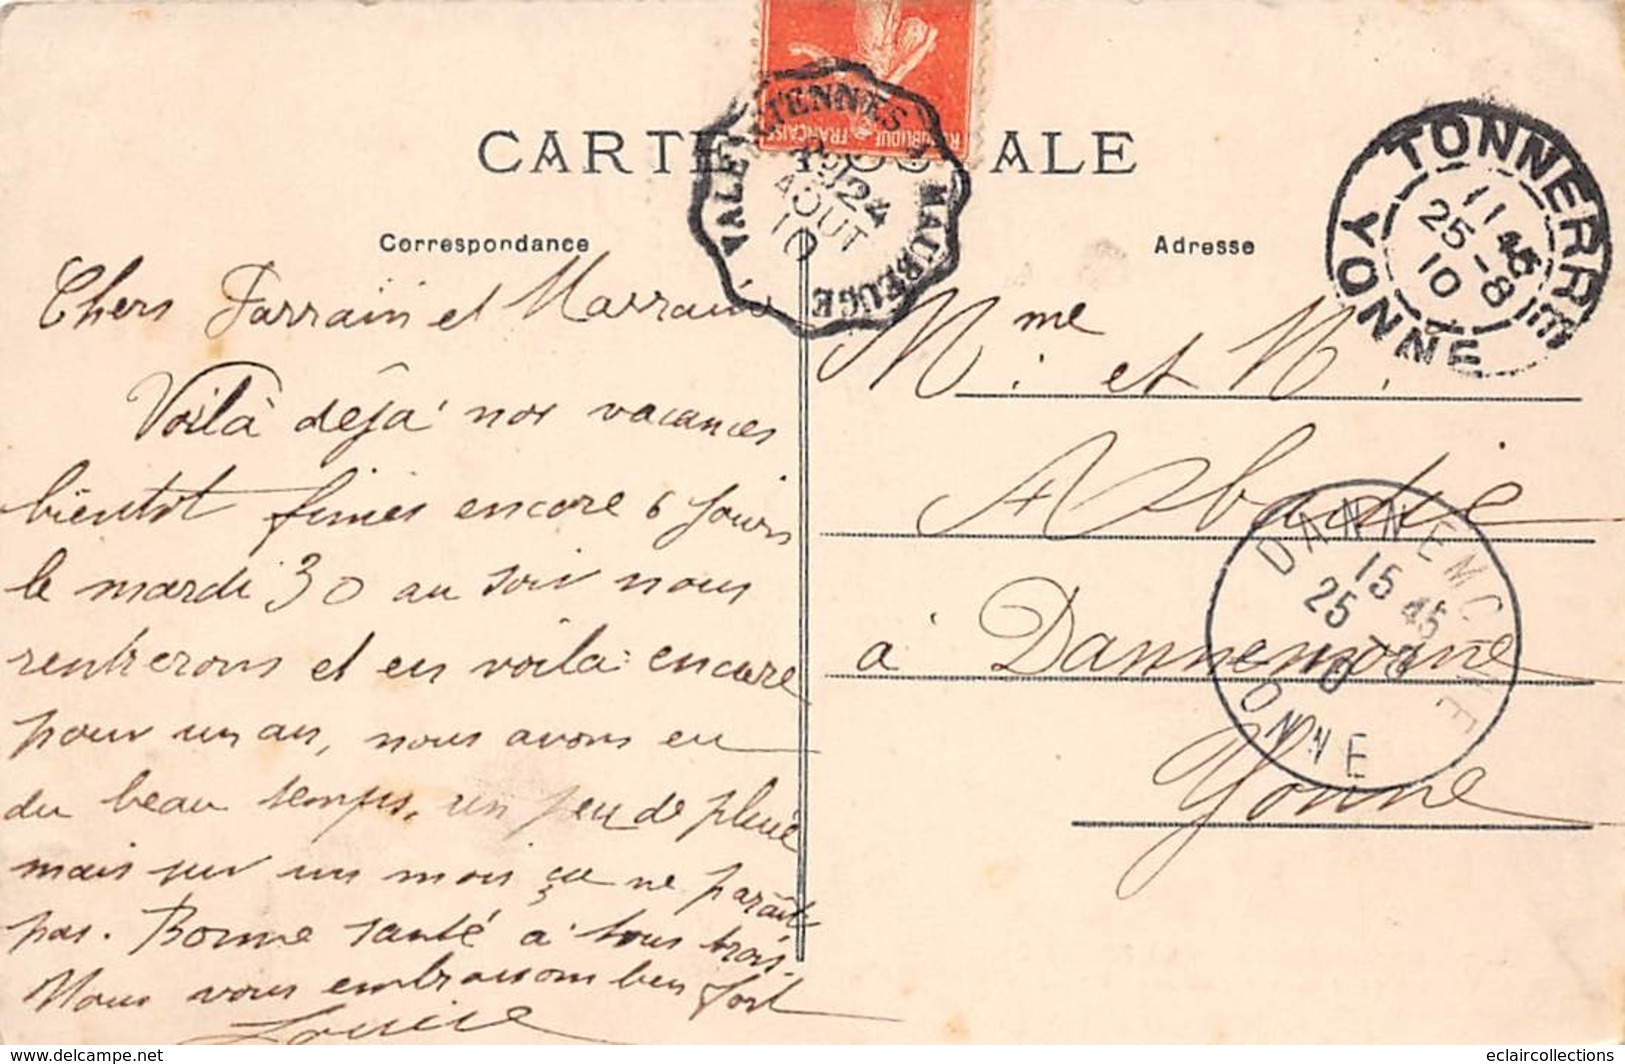 CARTE POSTALE
RÉPUBLIQUE FRANÇAISE
VALENCIENNES À MAUBEUGE
24
AOUT
10
TONNERRE
11 45
25 - 8
10
YONNE
Correspondance
Chers Parrain et Marraine
Voilà déjà nos vacances
bientôt finies encore 6 jours
le mardi 30 au soir nous
rentrerons et en voilà encore
pour un an, nous avons eu
du beau temps, un peu de pluie
mais sur un mois ça ne paraît
pas. Bonne santé à tous trois.
Nous vous embrassons bien fort
Louise
Adresse
Mme et M.
Abadie
à Dannemoine
Yonne
DANNEMOINE
15 45
25 - 8
10
YONNE
delcampe.net
eclaircollections